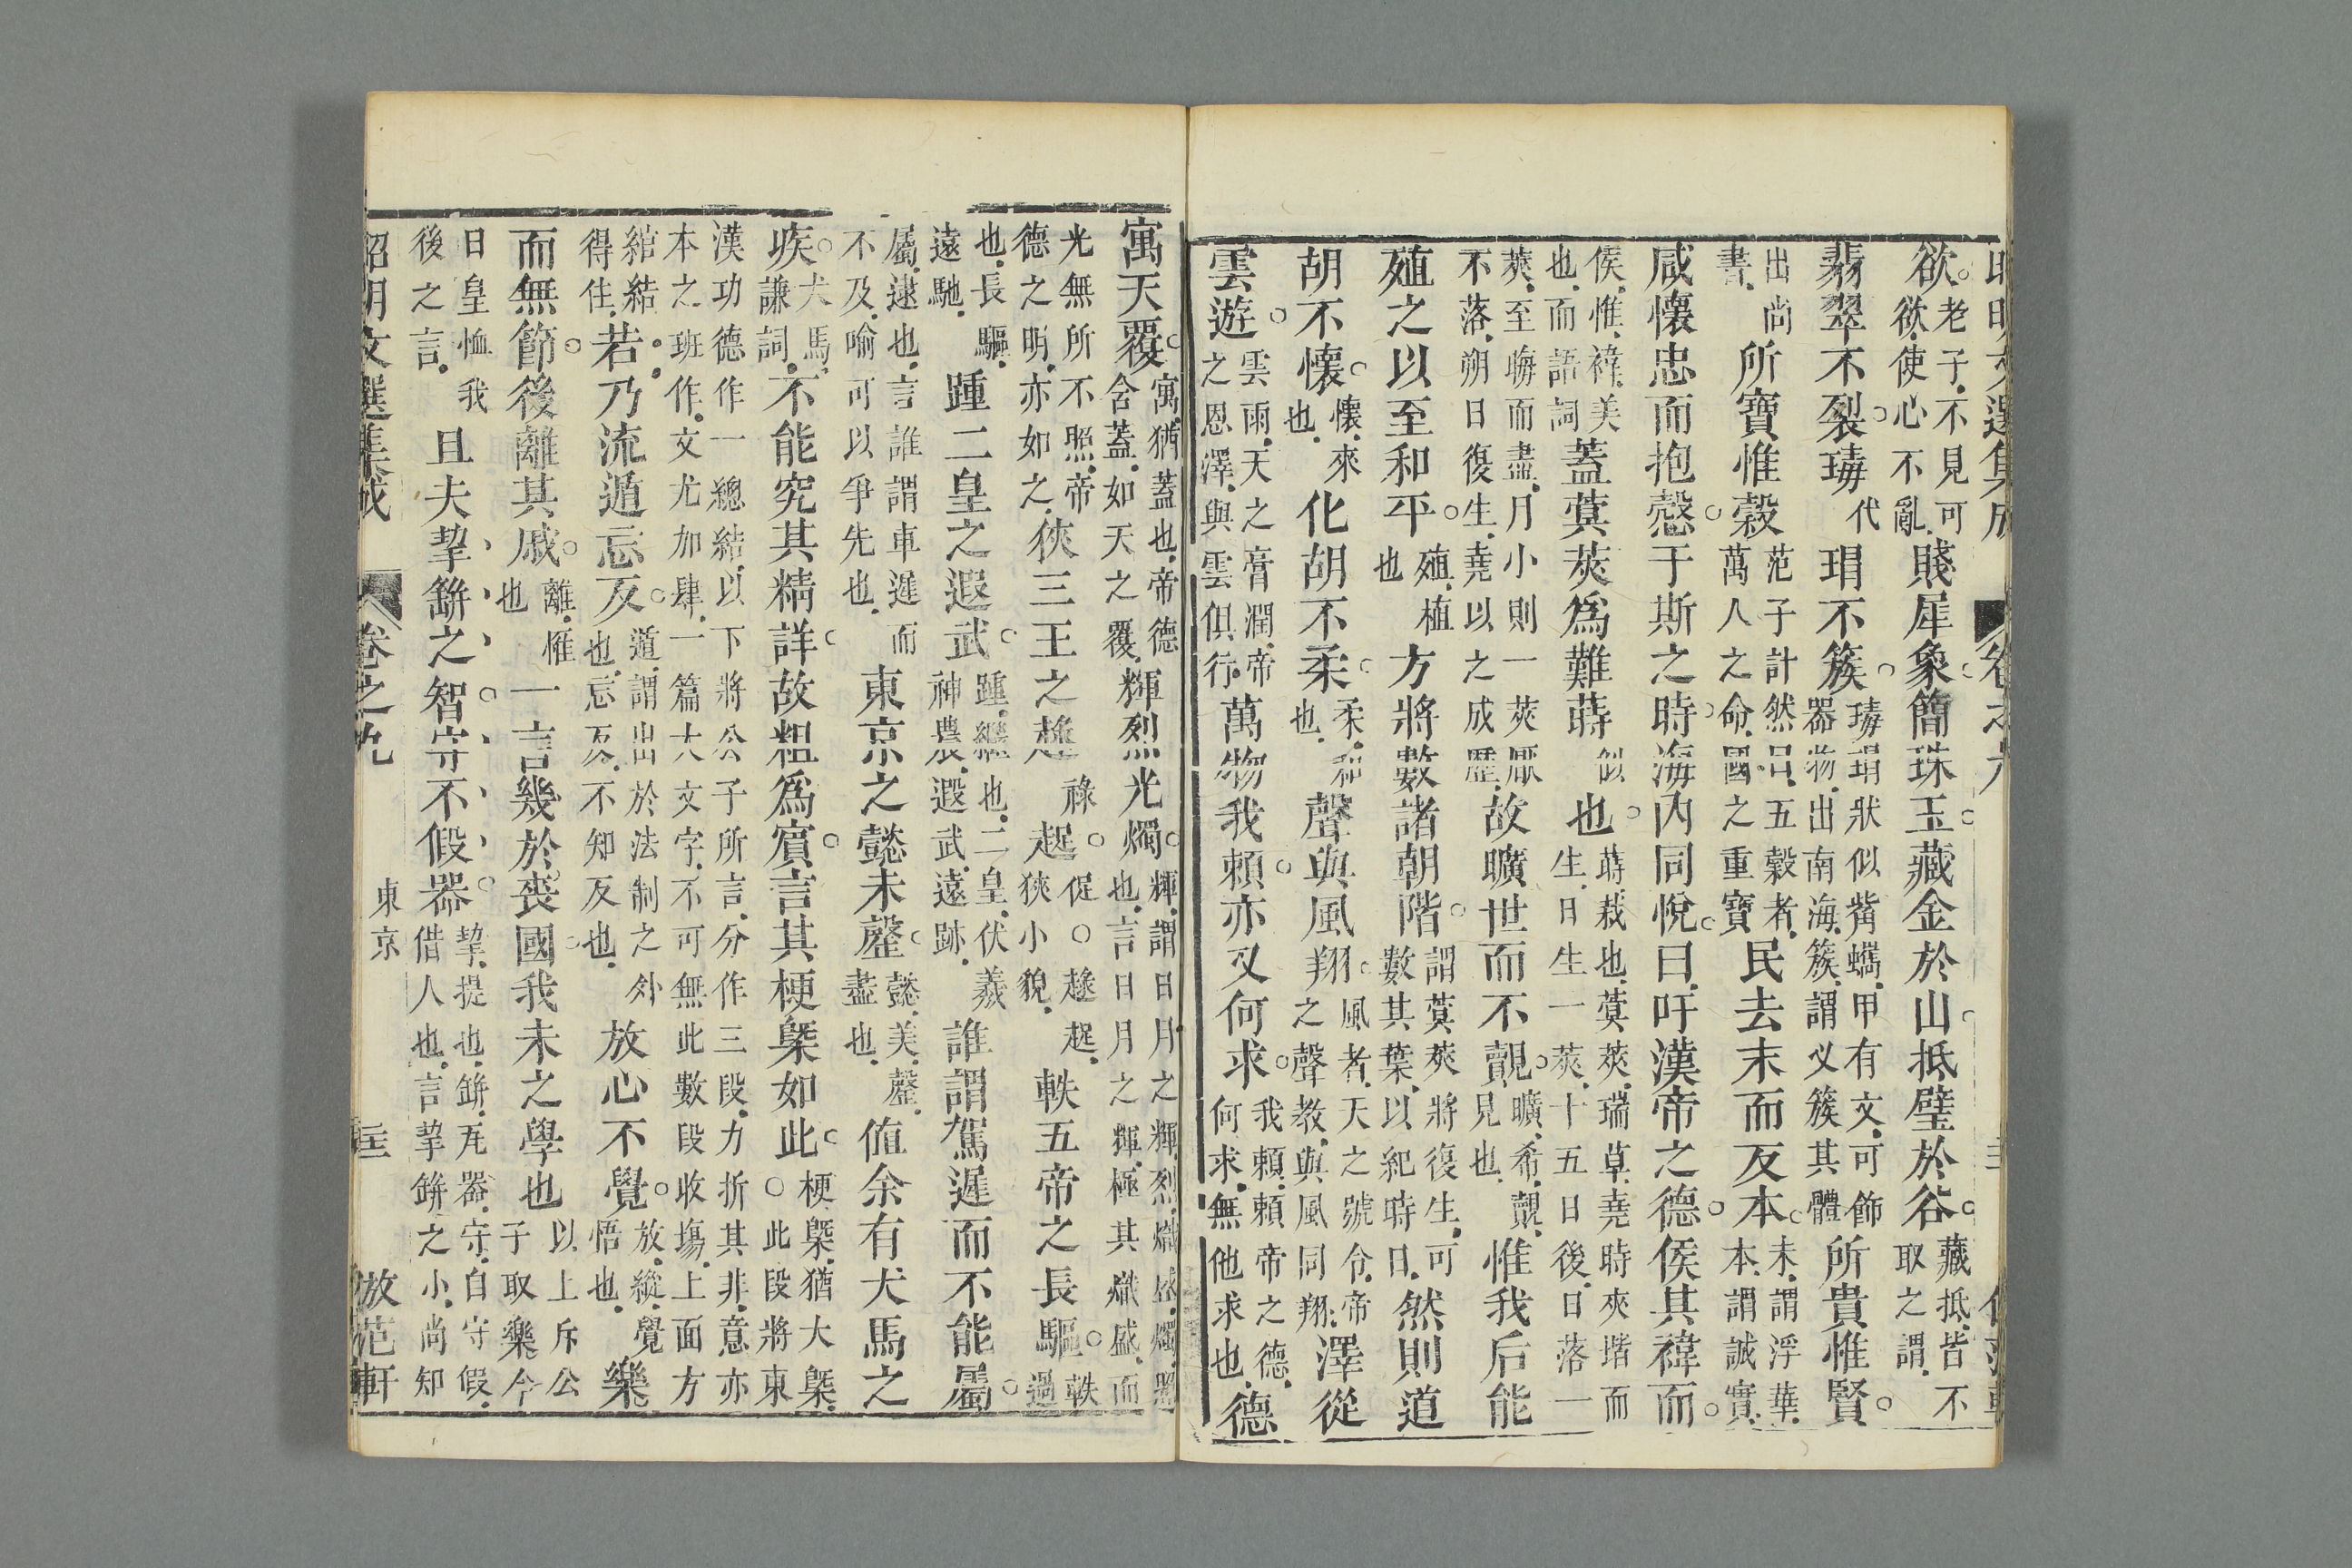 欲老子不見可欲使心不亂賤犀象簡珠玉藏金於山抵璧於谷藏抵皆不取之謂
翡翠不裂瑇代瑁不簇瑇瑁狀似觜蠵甲有文可飾器物出南海簇謂义簇其體所貴惟賢
出尚書所寶惟穀范子計然曰五穀者萬人之命國之重寶民去末而反本末謂浮華本謂誠實
咸懷忠而抱愨于斯之時海內同悅曰吁漢帝之德侯其禕而
侯惟禕美也而語詞蓋蓂莢爲難蒔似也蒔栽也蓂莢瑞草堯時夾堦而生日生一莢十五日後日落一
莢至晦而盡月小則一莢厭不落朔日復生堯以之成歷故曠世而不覿曠希覿見也惟我后能
殖之以至和平殖植也方將數諸朝階謂蓂莢將復生可數其葉以紀時日然則道
胡不懷懷來也化胡不柔柔和也聲與風翔風者天之號令帝之聲教與風同翔澤從
雲遊雲雨天之膏潤帝之恩澤與雲俱行萬物我賴亦又何求我賴賴帝之德何求無他求也德
寓天覆寓猶蓋也帝德含蓋如天之覆輝烈光燭輝謂日月之輝烈熾盛燭照也言日月之輝極其熾盛而
光無所不照帝德之明亦如之狹三王之趢祿起促○趢起狹小貌軼五帝之長驅軼過
也長驅遠馳踵二皇之遐武踵繼也二皇伏羲神農遐武遠跡誰謂駕遲而不能屬
屬逮也言誰謂車遲而不及喻可以爭先也東京之懿未罄懿美罄盡也値余有犬馬之
疾犬馬謙詞不能究其精詳故粗爲賓言其梗槩如此梗槩猶大槩○此段將東
漢功德作一總結以下將公子所言分作三段力折其非意亦本之班作文尤加肆一篇大文字不可無此數段收塲上面方
綰結得住若乃流遁忘反遁謂出於法制之外也忘反不知反也放心不覺放縱覺悟也樂
而無節後離其戚離罹也一言幾於喪國我未之學也以上斥公子取樂今
日皇恤我後之言且夫挈缾之智守不假器挈提也缾瓦器守自守假借人也言挈缾之小尚知
昭明文選集成 卷之九 東京 倣范軒